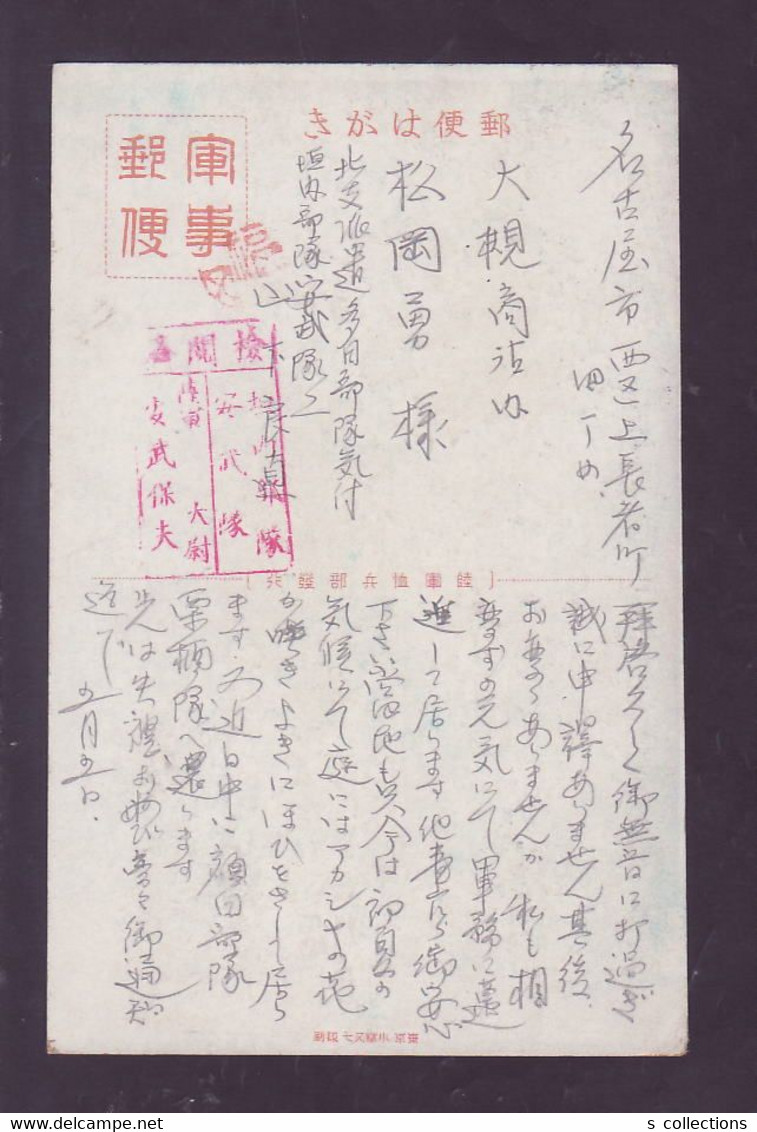 郵便はがき
軍事
郵便
名古屋市西区上長者町
四丁め、
大槻商店内
松岡勇様
北支派遣多田部隊気付
垣内部隊安武隊
山下
検閲
垣内部隊
安武隊
陸軍大尉
安武保夫
陸軍恤兵部發
拝啓久しく御無音に打過ぎ
誠に申譯ありません其後
お変りありませんか私も相
変ずの元気にて軍務に邁
進して居ります他事乍ら御安心
下さい當地も只今は初夏の
気候にて庭にはアカシヤの花
が咲きよきにほひをさし居ら
ます又近日中に 部隊
栗栖隊へ還ります
先は失禮お 御通知
迄で 五月五日、
東京 小塚又七 印刷
s collections